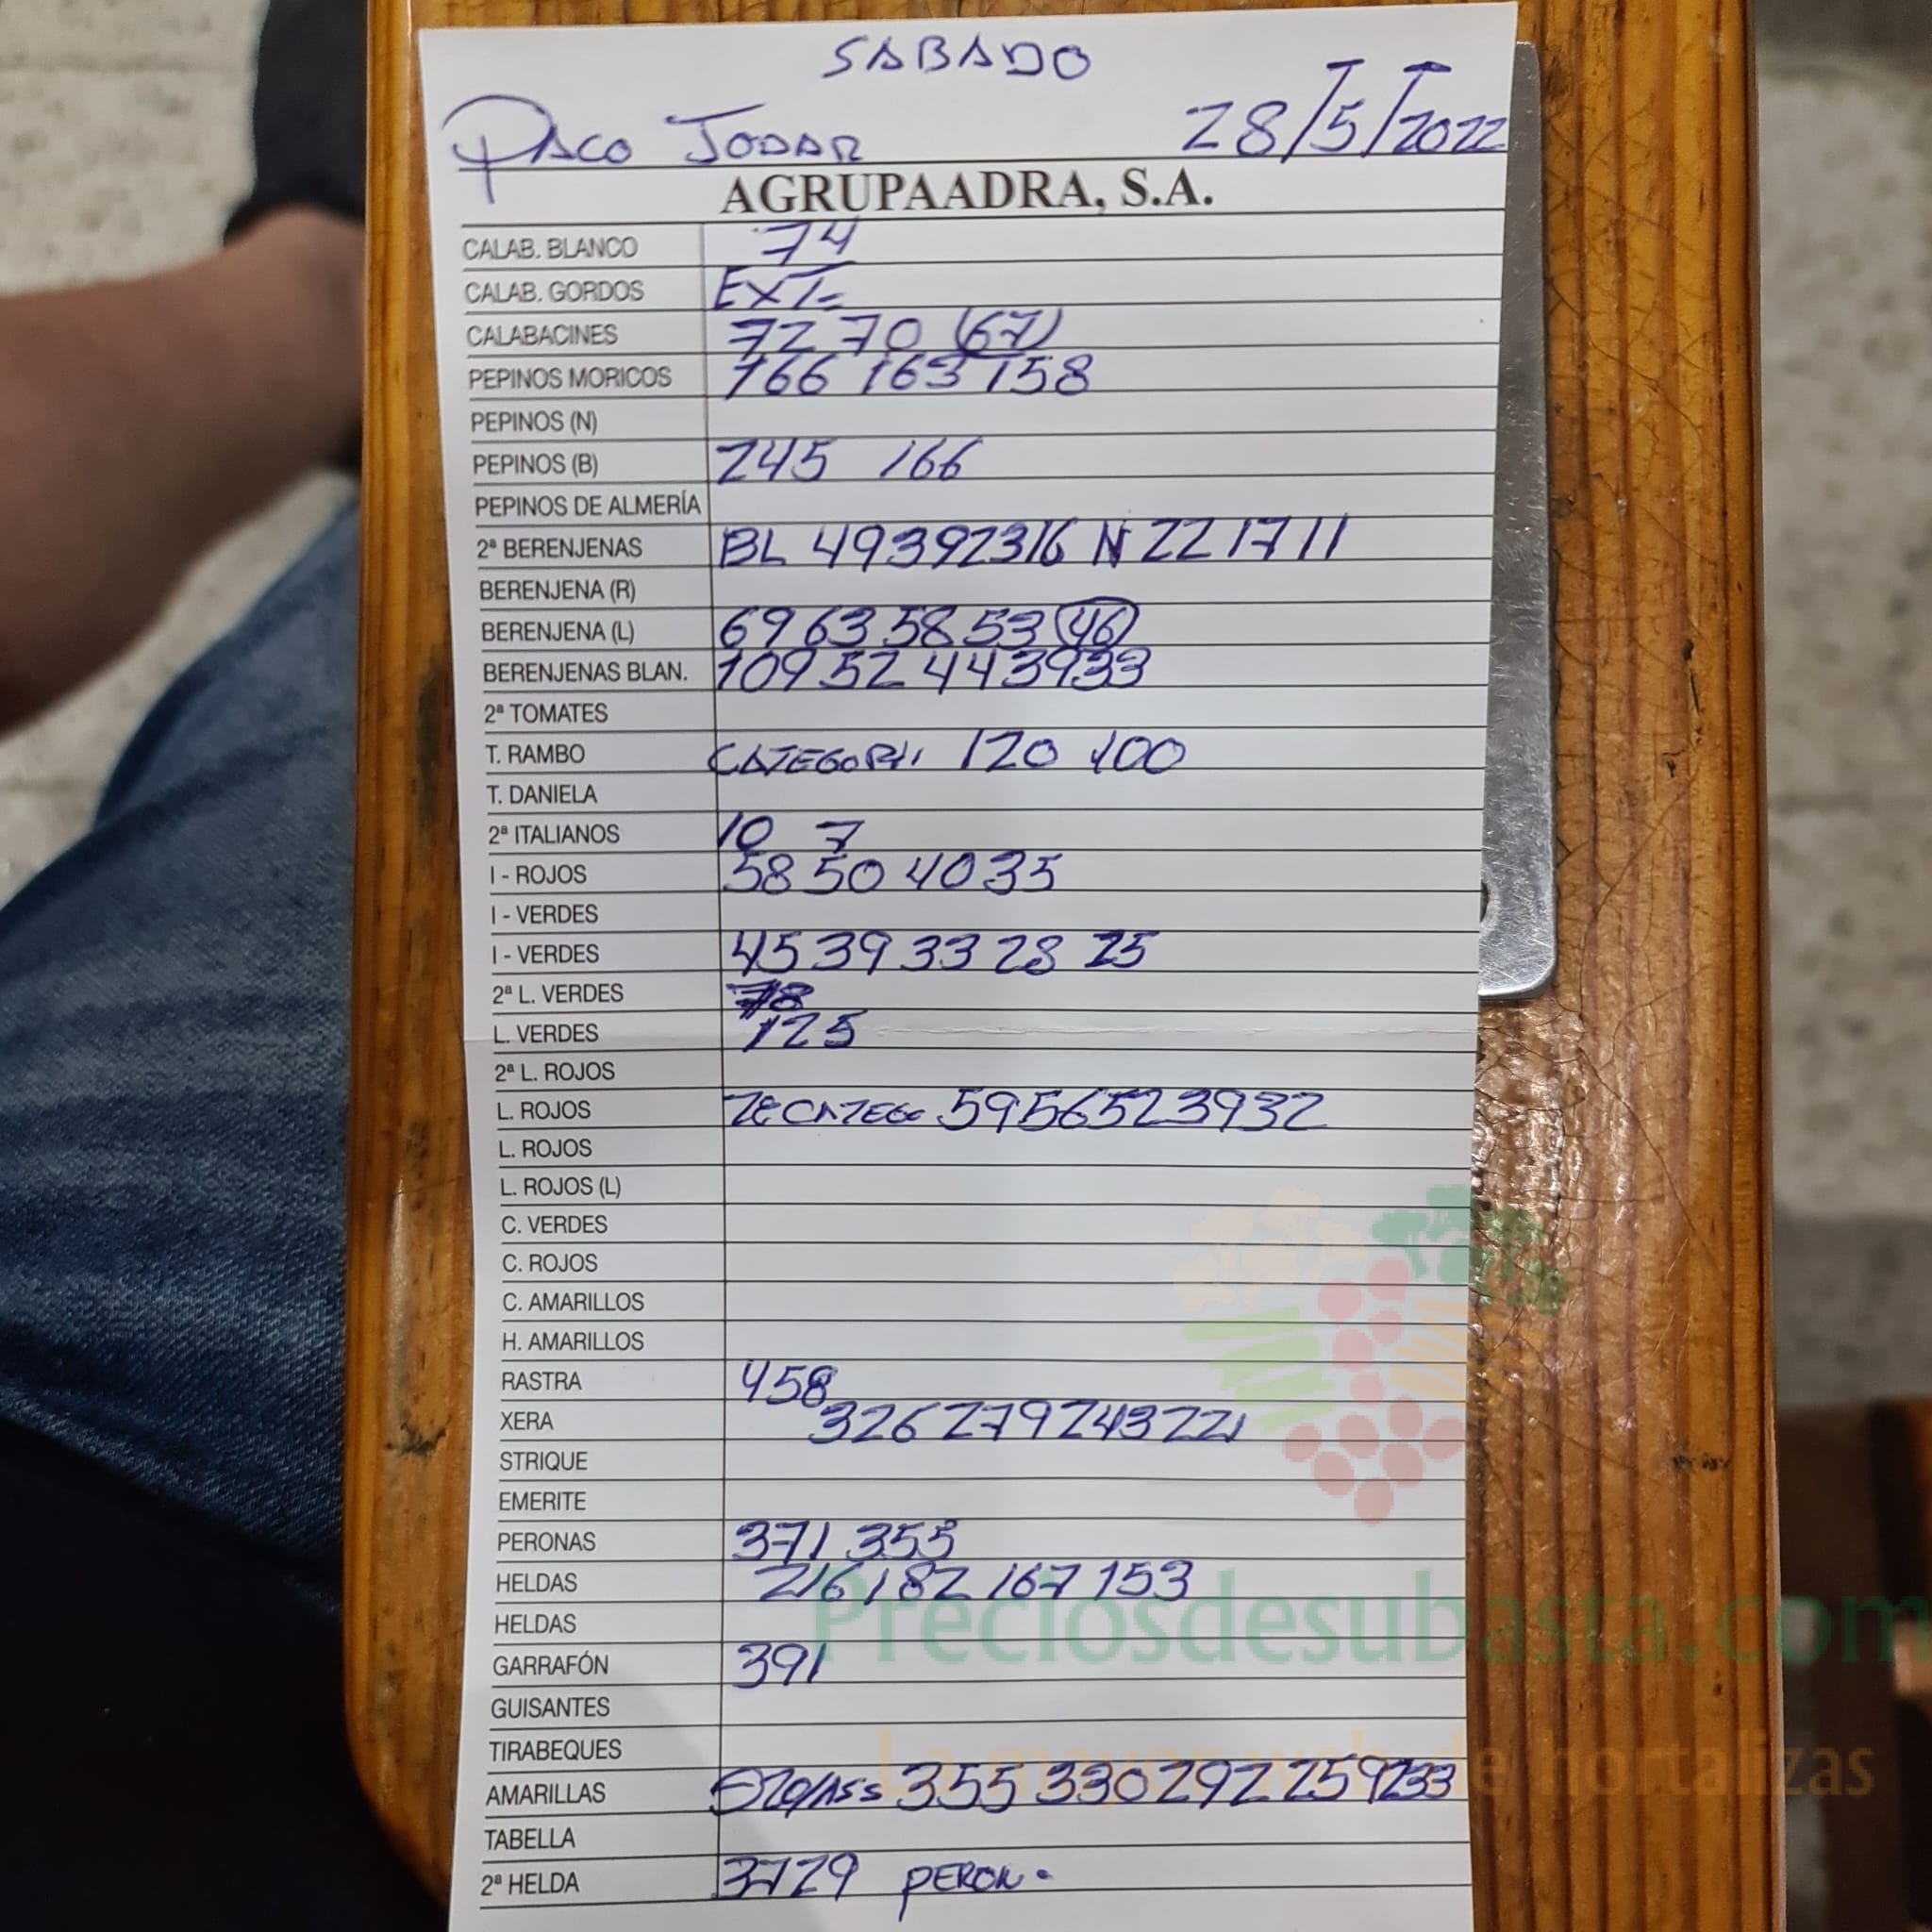 SABADO
PACO JODAR 28/5/2022
AGRUPAADRA, S.A.
CALAB. BLANCO 74
CALAB. GORDOS EXT-
CALABACINES 72 70 (67)
PEPINOS MORICOS 166 163 158
PEPINOS (N)
PEPINOS (B) 245 166
PEPINOS DE ALMERÍA
2ª BERENJENAS BL 49 39 23 16 N 22 17 11
BERENJENA (R)
BERENJENA (L) 69 63 58 53 (46)
BERENJENAS BLAN. 109 52 44 39 33
2ª TOMATES
T. RAMBO CATEGORI 120 100
T. DANIELA
2ª ITALIANOS 10 7
I - ROJOS 58 50 40 35
I - VERDES
I - VERDES 45 39 33 28 25
2ª L. VERDES
L. VERDES 125
2ª L. ROJOS
L. ROJOS 59 56 52 39 32
L. ROJOS
L. ROJOS (L)
C. VERDES
C. ROJOS
C. AMARILLOS
H. AMARILLOS
RASTRA 458
XERA 326 279 243 221
STRIQUE
EMERITE
PERONAS 371 355
HELDAS 216 182 167 153
HELDAS
Preciosdesubasta.com
GARRAFÓN 391
GUISANTES
TIRABEQUES
La mayor web de hortalizas
AMARILLAS 355 330 292 259 233
TABELLA
2ª HELDA 37 29 PERON.